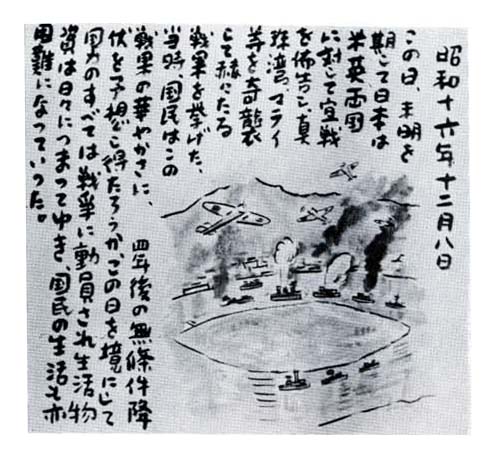 昭和十六年十二月八日
この日、未明を
期して日本は
米英両国
に対して宣戦
を佈告し、真
珠湾、マライ
等を奇襲
して赫々たる
戦果を挙げた、
当時、国民はこの
戦果の華やかさに、四年後の無條件降
伏を予想し得たろうか、この日を境にして
男のすべては戦爭に動員され生活物
資は日々につまってゆき国民の生活も亦
困難になっていった。